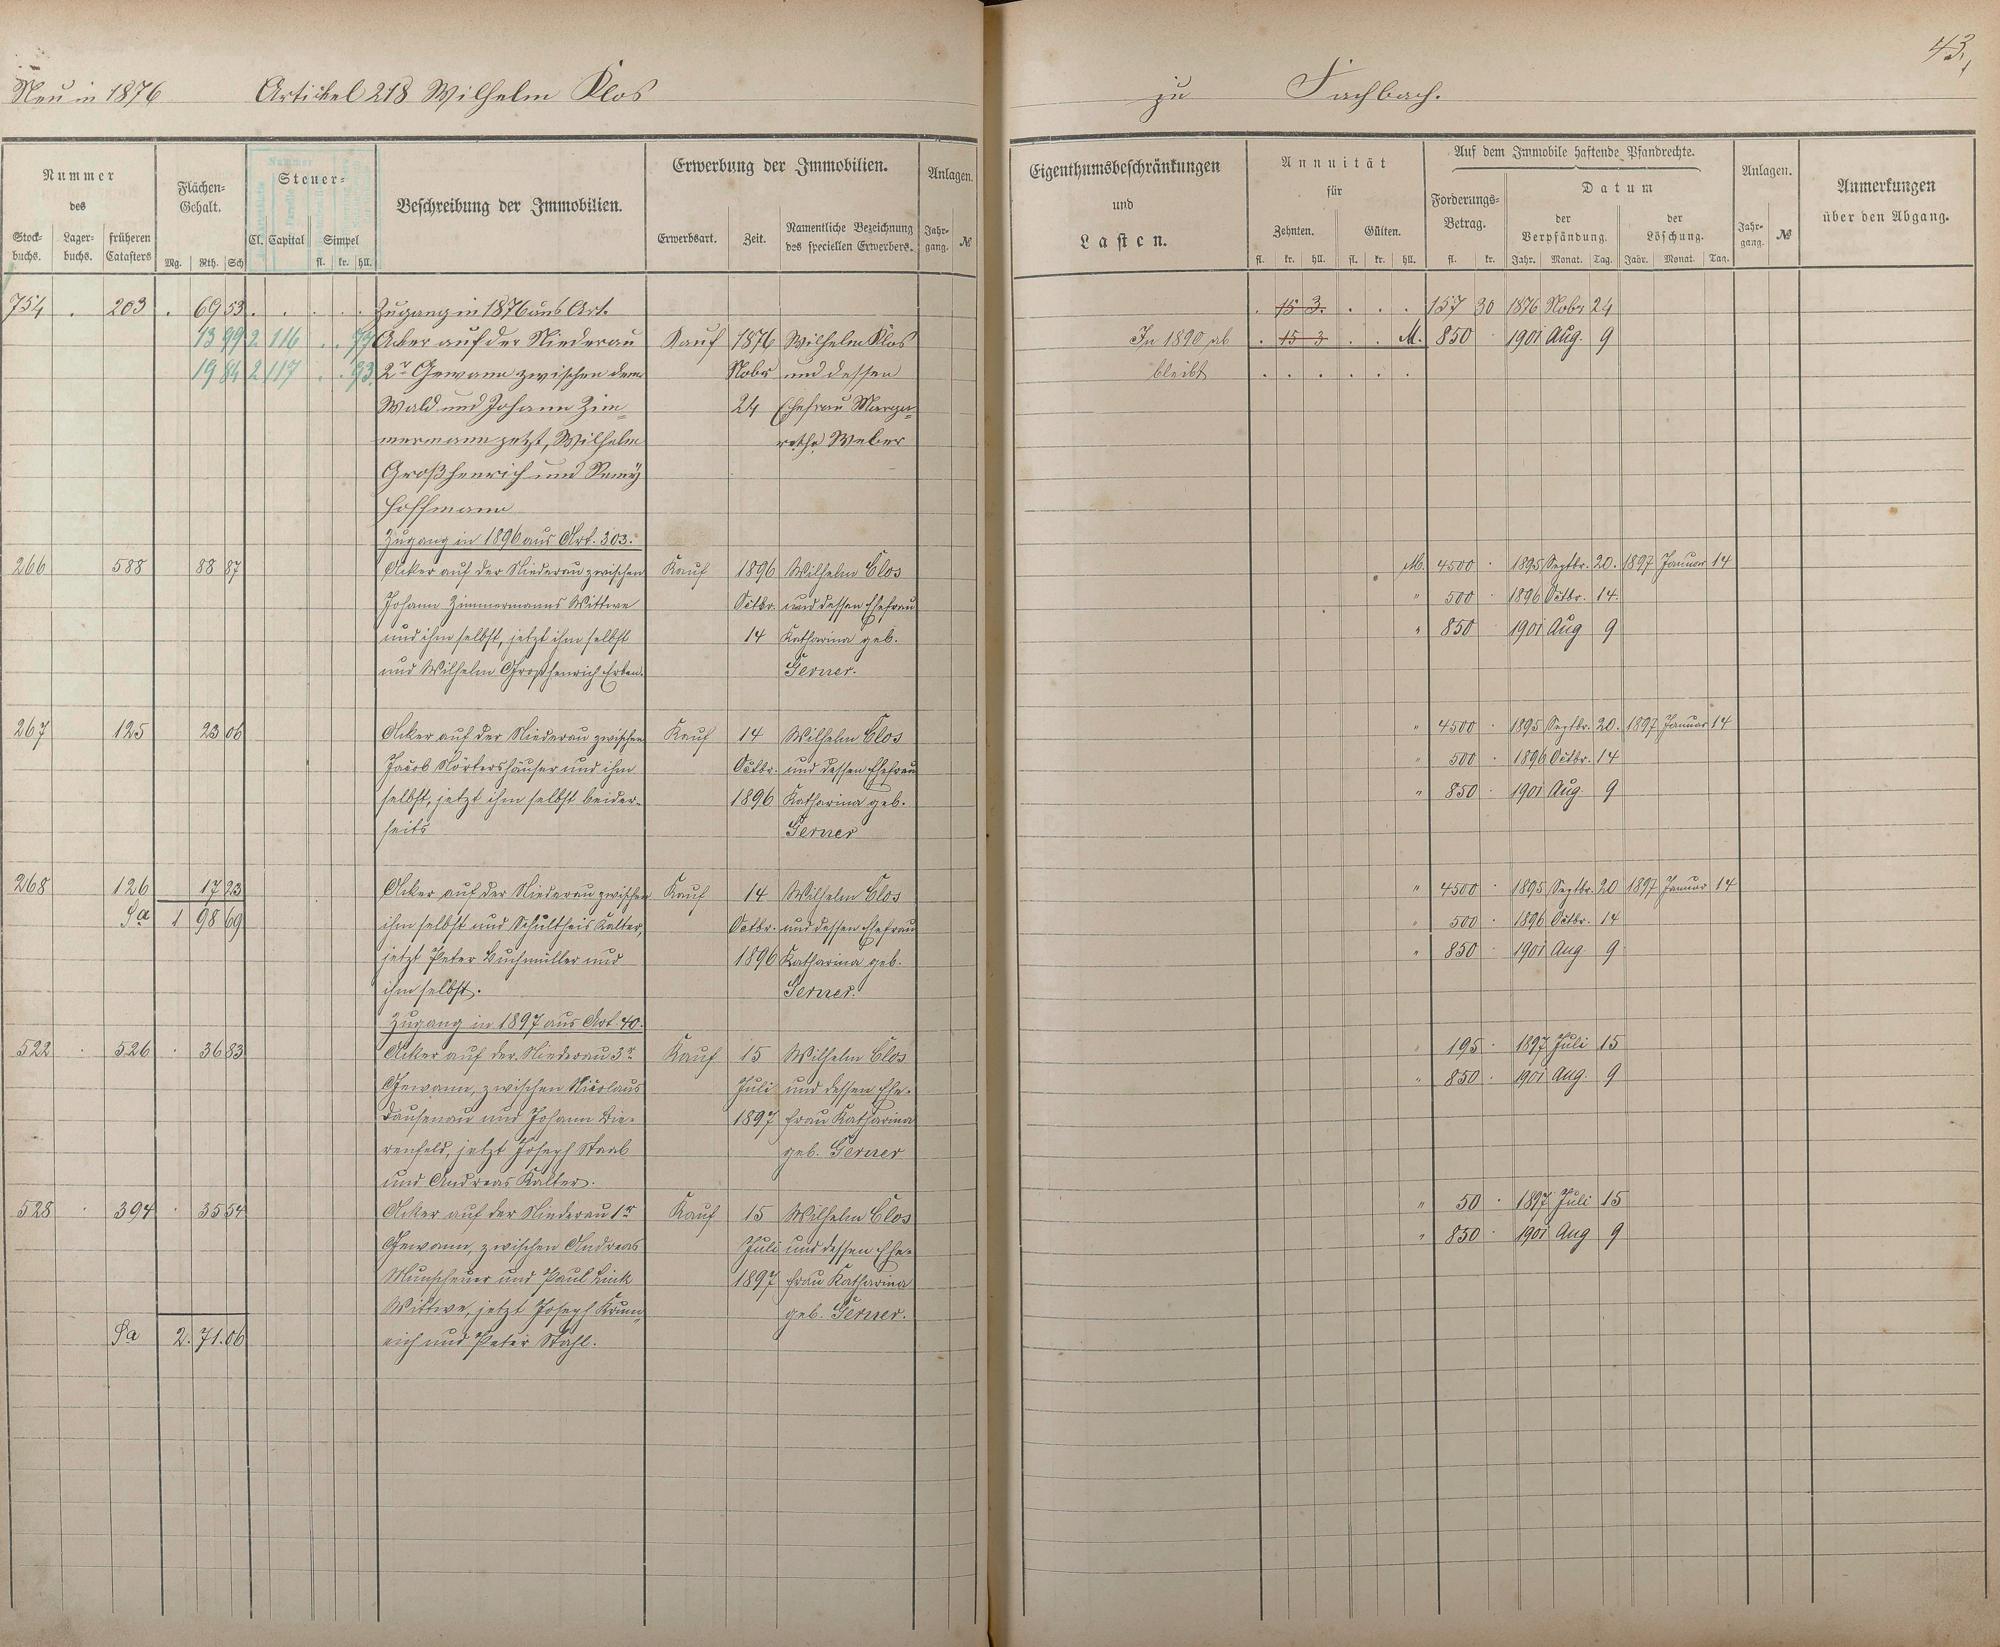 43,
Neu in 1876 Artikel 218 Wilhelm Klos zu Fachbach.
Nummer des
Stock- buchs. Lager- buchs. früheren Catasters
Flächen- Gehalt.
Mg. Rth. Sch
Steuer-
Cl. Capital Simpel
fl. kr. hll.
Beschreibung der Immobilien.
Erwerbung der Immobilien.
Erwerbsart. Zeit. Namentliche Bezeichnung des speciellen Erwerbers.
Anlagen.
Jahr- gang. №
Eigenthumsbeschränkungen und Lasten.
Annuität für
Zehnten. Gülten.
fl. kr. hll. fl. kr. hll.
Auf dem Immobile haftende Pfandrechte.
Forderungs- Betrag.
fl. kr.
Datum
der Verpfändung. der Löschung.
Jahr. Monat. Tag. Jahr. Monat. Tag.
Anlagen.
Jahr- gang. №
Anmerkungen über den Abgang.
754 . 203 . 69 53 . . . . . Zugang in 1876 aus Art. . 15 3. . . . 157 30 1876 Nobr 24
13 99 2 116 . . 79 Acker auf der Niederau Kauf 1876 Wilhelm Klos In 1890 ab . 15 3 . . M. 850 1901 Aug. 9
19 84 2 117 . . 93 2r Gewann zwischen dem Nobr und dessen bleibt . . . . . .
Wald und Johann Zim- 24 Ehefrau Marga-
mermann jetzt, Wilhelm rethe Weber
Großhenrich und Remÿ
Hoffmann
Zugang in 1896 aus Art. 303.
266 588 88 87 Acker auf der Niederau zwischen Kauf 1896 Wilhelm Clos M. 4500 . 1895 Septbr. 20. 1897 Januar 14
Johann Zimmermanns Wittwe Octbr. und dessen Ehefrau " 500 . 1896 Octbr. 14.
und ihm selbst, jetzt ihm selbst 14 Katharina geb. " 850 1901 Aug 9
und Wilhelm Großhenrich Erben. Gerner.
267 125 23 06 Acker auf der Niederau zwischen Kauf 14 Wilhelm Clos " 4500 . 1895 Septbr. 20. 1897 Januar 14
Jacob Nörtershäuser und ihm Octbr. und dessen Ehefrau " 500 . 1896 Octbr. 14
selbst, jetzt ihm selbst beider- 1896 Katharina geb. " 850 . 1901 Aug. 9
seits Gerner
268 126 17 23 Acker auf der Niederau zwischen Kauf 14 Wilhelm Clos " 4500 . 1895 Septbr. 20 1897 Januar 14
Sa 1 98 69 ihm selbst und Schultheis Kalter, Octbr. und dessen Ehefrau " 500 . 1896 Octbr. 14
jetzt Peter Buchmüller und 1896 Katharina geb. " 850 . 1901 Aug 9
ihm selbst. Gerner.
Zugang in 1897 aus Art. 40.
522 . 526 . 36 83 Acker auf der Niederau 3r Kauf 15 Wilhelm Clos " 195 . 1897 Juli 15
Gewann, zwischen Nicolaus Juli und dessen Ehe- " 850 . 1901 Aug. 9
Dausenau und Johann Bie- 1897 frau Katharina
renfeld, jetzt Joseph Staab geb. Gerner
und Andreas Kalter.
528 . 394 . 35 54 Acker auf der Niederau 1r Kauf 15 Wilhelm Clos " 50 . 1897 Juli 15
Gewann, zwischen Andreas Juli und dessen Ehe- " 850 . 1901 Aug 9
Munscheuer und Paul Link 1897 frau Katharina
Wittwe, jetzt Joseph geb. Gerner.
Sa 2. 71. 06 und Peter Stahl.